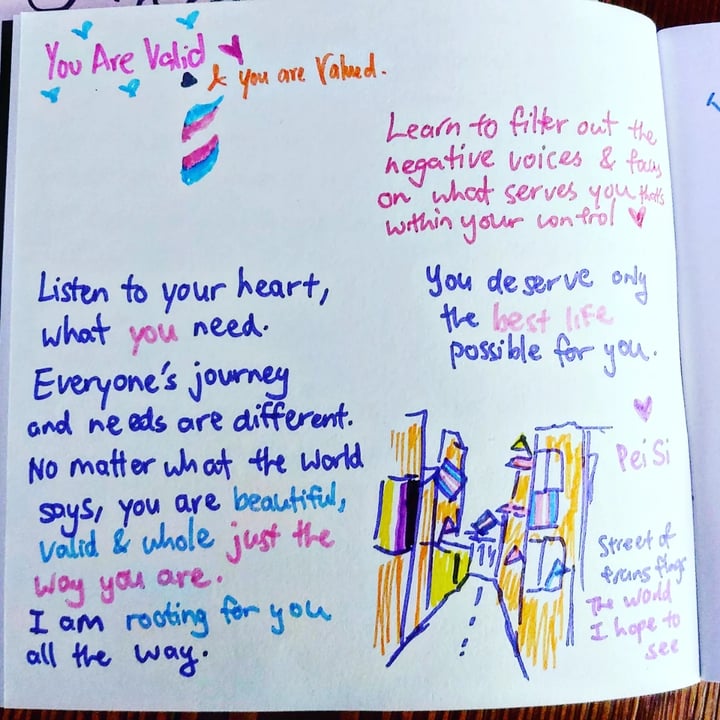 You Are Valid
& you are Valued.
Learn to filter out the
negative voices & focus
on what serves you that's
within your control
Listen to your heart,
what you need.
Everyone's journey
and needs are different.
No matter what the world
says, you are beautiful,
valid & whole just the
way you are.
I am rooting for you
all the way.
You deserve only
the best life
possible for you.
Pei Si
Street of
trans flags
The world
I hope to
see